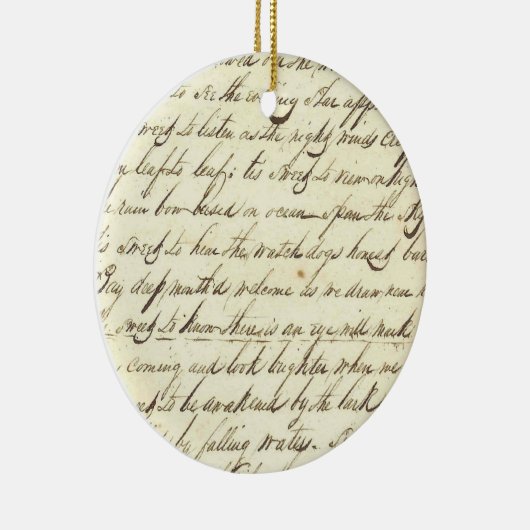 owed on the
to see the evening Star app
Sweet to listen as the night winds cree
m leaf to leaf; tis Sweet to view on high
e rain bow based on ocean Span the Sky
is Sweet to hear the watch dogs honest bar
Bay deep mouth'd welcome as we draw near
Sweet to know there is an eye will mark
coming and look brighter when we
to be awakened by the lark
by falling waters.